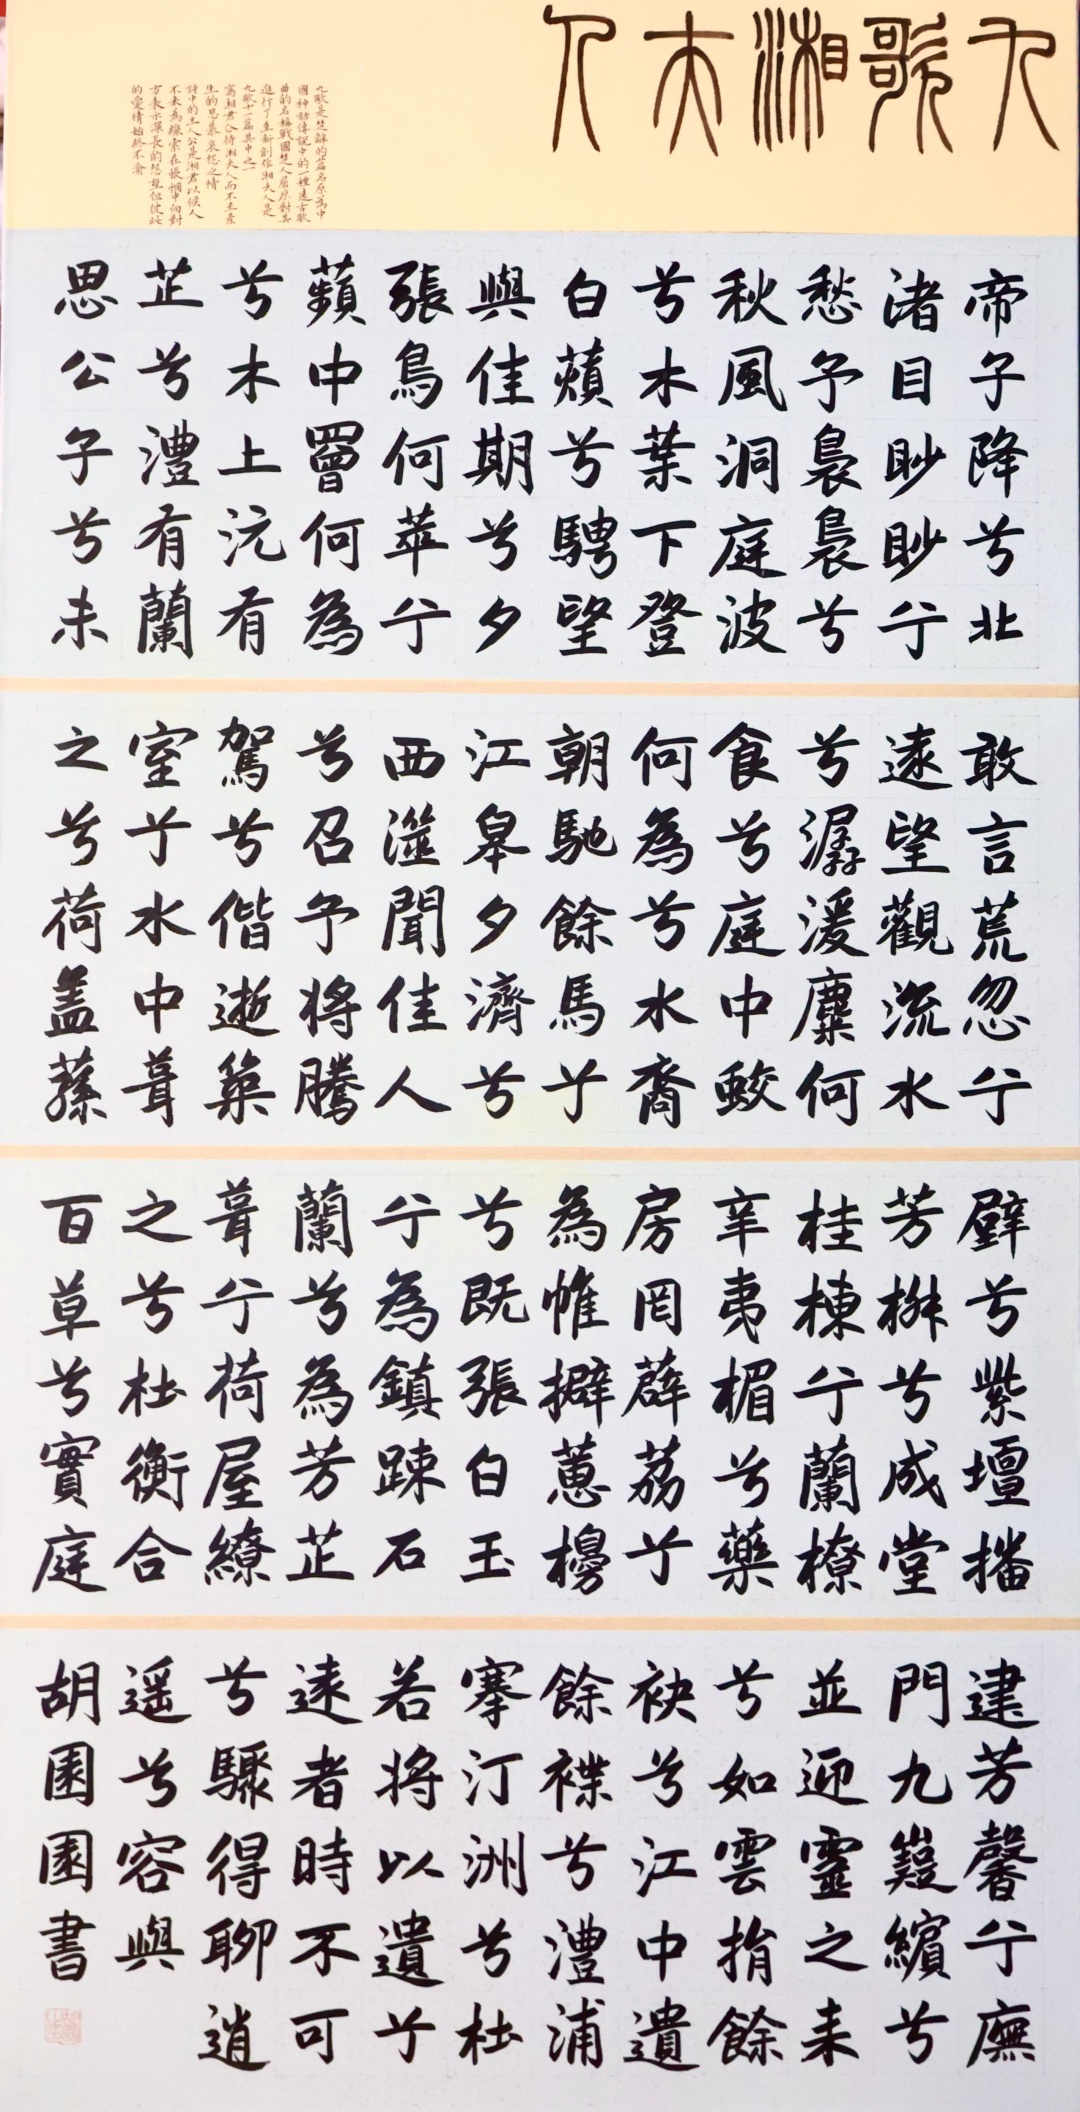 九歌湘夫人
九歌是楚辭的篇名原為中
國神話傳說中的一種遠古歌
曲的名稱戰國楚人屈原對其
進行了重新創作湘夫人是
九歌十一篇其中之一
寫湘君企待湘夫人而不至產
生的思慕哀怨之情
詩中的主人公是湘君以候人
不來為線索在悵惘中向對
方表示深長的怨望但彼此
的愛情始終不渝
帝子降兮北
渚目眇眇兮
愁予裊裊兮
秋風洞庭波
兮木葉下登
白薠兮騁望
與佳期兮夕
張鳥何萃兮
蘋中罾何為
兮木上沅有
芷兮澧有蘭
思公子兮未
敢言荒忽兮
遠望觀流水
兮潺湲麋何
食兮庭中蛟
何為兮水裔
朝馳餘馬兮
江皋夕濟兮
西澨聞佳人
兮召予將騰
駕兮偕逝築
室兮水中葺
之兮荷蓋蓀
壁兮紫壇播
芳椒兮成堂
桂棟兮蘭橑
辛夷楣兮藥
房罔薜荔兮
為帷擗蕙櫋
兮既張白玉
兮為鎮疎石
蘭兮為芳芷
葺兮荷屋繚
之兮杜衡合
百草兮實庭
建芳馨兮廡
門九嶷繽兮
並迎靈之來
兮如雲捐餘
袂兮江中遺
餘褋兮澧浦
搴汀洲兮杜
若將以遺兮
遠者時不可
兮驟得聊逍
遙兮容與
胡園園書